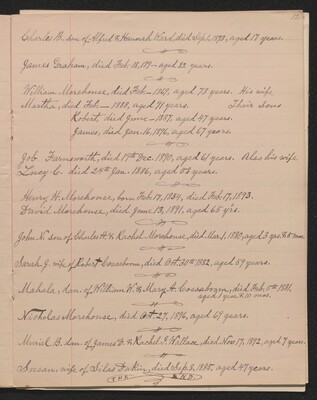 Charles B. son of Alfred & Hannah Ward died Sept. 1873, aged 17 years.
James Graham, died Feb. 18, 189- aged 82 years.
William Morehouse, died Feb - 1869, aged 73 years. His wife
Martha, died Feb - 1888, aged 91 years. Their sons
Robert died June - 1857, aged 47 years.
James, died Jan. 16, 1896, aged 67 years.
Job Farnsworth, died 19th Dec. 1890, aged 61 years. Also his wife
Lucy C. died 24th Jan. 1886, aged 52 years.
Henry H. Morehouse, born Feb. 17, 1834, died Feb. 17, 1893.
David Morehouse, died June 13, 1891, aged 65 yrs.
John N. son of Charles H. & Rachel Morehouse, died Mar. 1, 1880, aged 3 yrs. & 8 mos.
Sarah J. wife of Robert Cossaboom, died Oct. 30th 1882, aged 59 years.
Mahala, dau. of William W. & Mary A. Cossaboom, died Feb. 1881,
aged 1 year & 10 mos.
Nicholas Morehouse, died Oct 27, 1896, aged 69 years.
Muriel B. dau. of James D. & Rachel J. Wallace, died Nov. 17, 1892, aged 7 years.
Susan, wife of Silas Dakin, died Sep. 8, 1885, aged 47 years.
THE END.